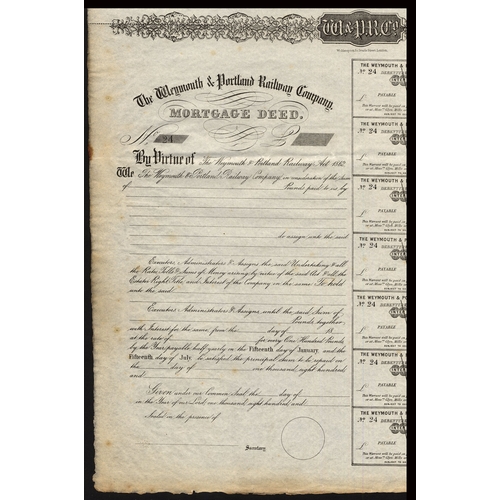 W&PRCo.
The Weymouth & Portland Railway Company.
MORTGAGE DEED.
No 24 £
By Virtue of The Weymouth & Portland Railway Act 1862,
We The Weymouth & Portland Railway Company, in consideration of the Sum
of Pounds paid to us by
to assign unto the said
Executors Administrators & Assigns the said Undertaking & all
the Rates Tolls & Sums of Money arising by virtue of the said Act & all the
Estate Right Title and Interest of the Company in the same To hold
unto the said
Executors Administrators & Assigns until the said Sum of
Pounds together
with Interest for the same from the day of 18
at the rate of for every One Hundred Pounds
by the Year payable half yearly on the Fifteenth day of January, and the
Fifteenth day of July be satisfied the principal Sum to be repaid on
the day of one thousand, eight hundred
and
Given under our Common Seal this day of
in the Year of our Lord one thousand, eight hundred, and
Sealed in the presence of
Secretary
THE WEYMOUTH &
No 24 DEBENTU
£ PAYABLE
This Warrant will be paid on
THE WEYMOUTH &
No 24 DEBENTU
£ PAYABLE
This Warrant will be paid on
THE WEYMOUTH & P
No 24 DEBENTU
£ PAYABLE
This Warrant will be paid on
THE WEYMOUTH & P
No 24 DEBENTU
£ PAYABLE
This Warrant will be paid on
THE WEYMOUTH & PO
No 24 DEBENTU
£ PAYABLE
This Warrant will be paid on
THE WEYMOUTH & P
No 24 DEBENTU
£ PAYABLE
This Warrant will be paid on
THE WEYMOUTH & P
No 24 DEBENTU
£ PAYABLE
This Warrant will be paid on